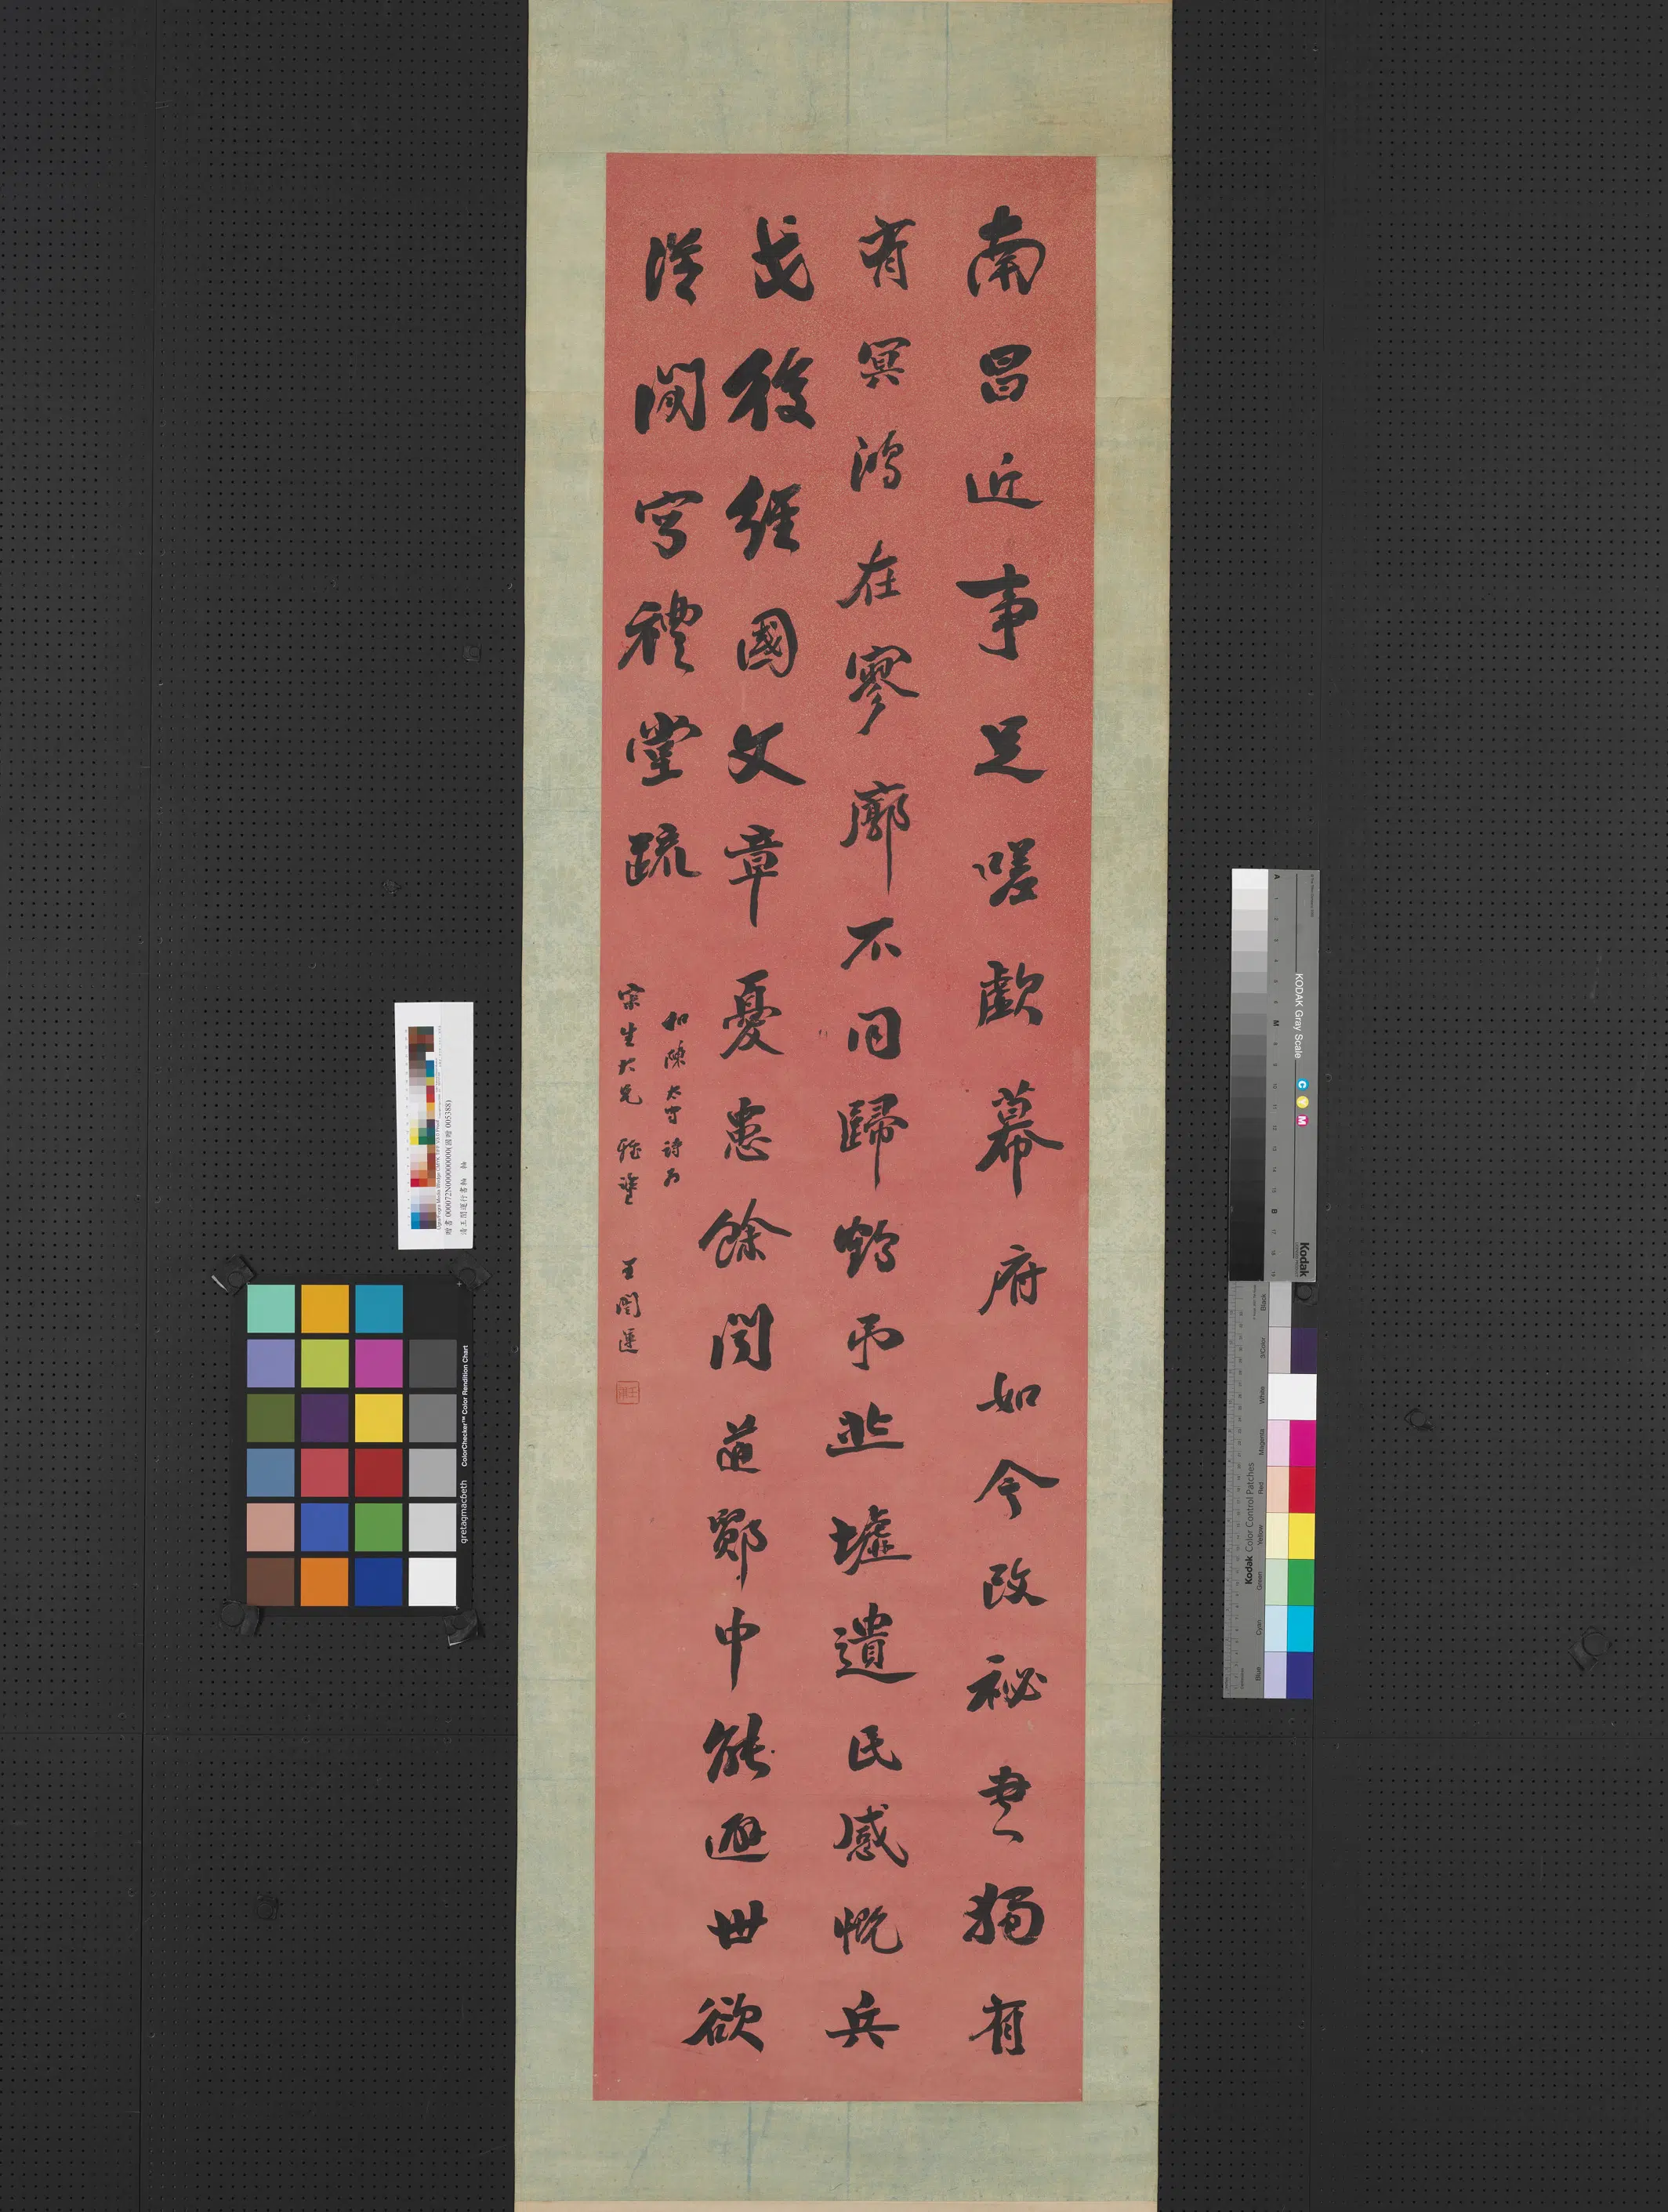 南昌近事足嗟歔幕府如今改祕書獨有
有冥鴻在寥廓不同歸鶴弔丘墟遺民感慨兵
戈後經國文章憂患餘聞道鄮中能避世欲
從閒寫禮堂疏
和陳太守詩為
宗生大兄 雅鑒 王闓運
贈書 000072N000000000(國贈 005388)
清王闓運行書軸 軸
KODAK Gray Scale
C Y M
Kodak
A 1 2 3 4 5 6 M 8 9 10 11 12 13 14 15 B 17 18 19
Kodak Color Control Patches
Blue Cyan Green Yellow Red Magenta White 3/Color Black
ColorChecker™ Color Rendition Chart
gretagmacbeth